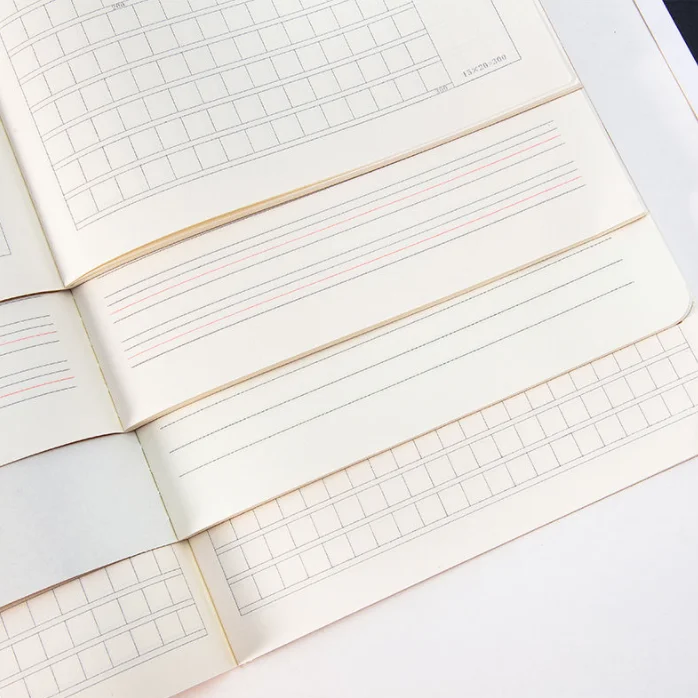 15×20=300
300